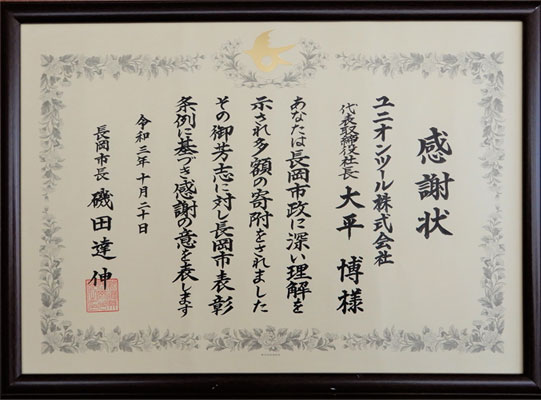 感謝状
ユニオンツール株式会社
代表取締役社長 大平 博様
あなたは長岡市政に深い理解を
示され多額の寄附をされました
その御芳志に対し長岡市表彰
条例に基づき感謝の意を表します
令和三年十月二十日
長岡市長 磯田達伸